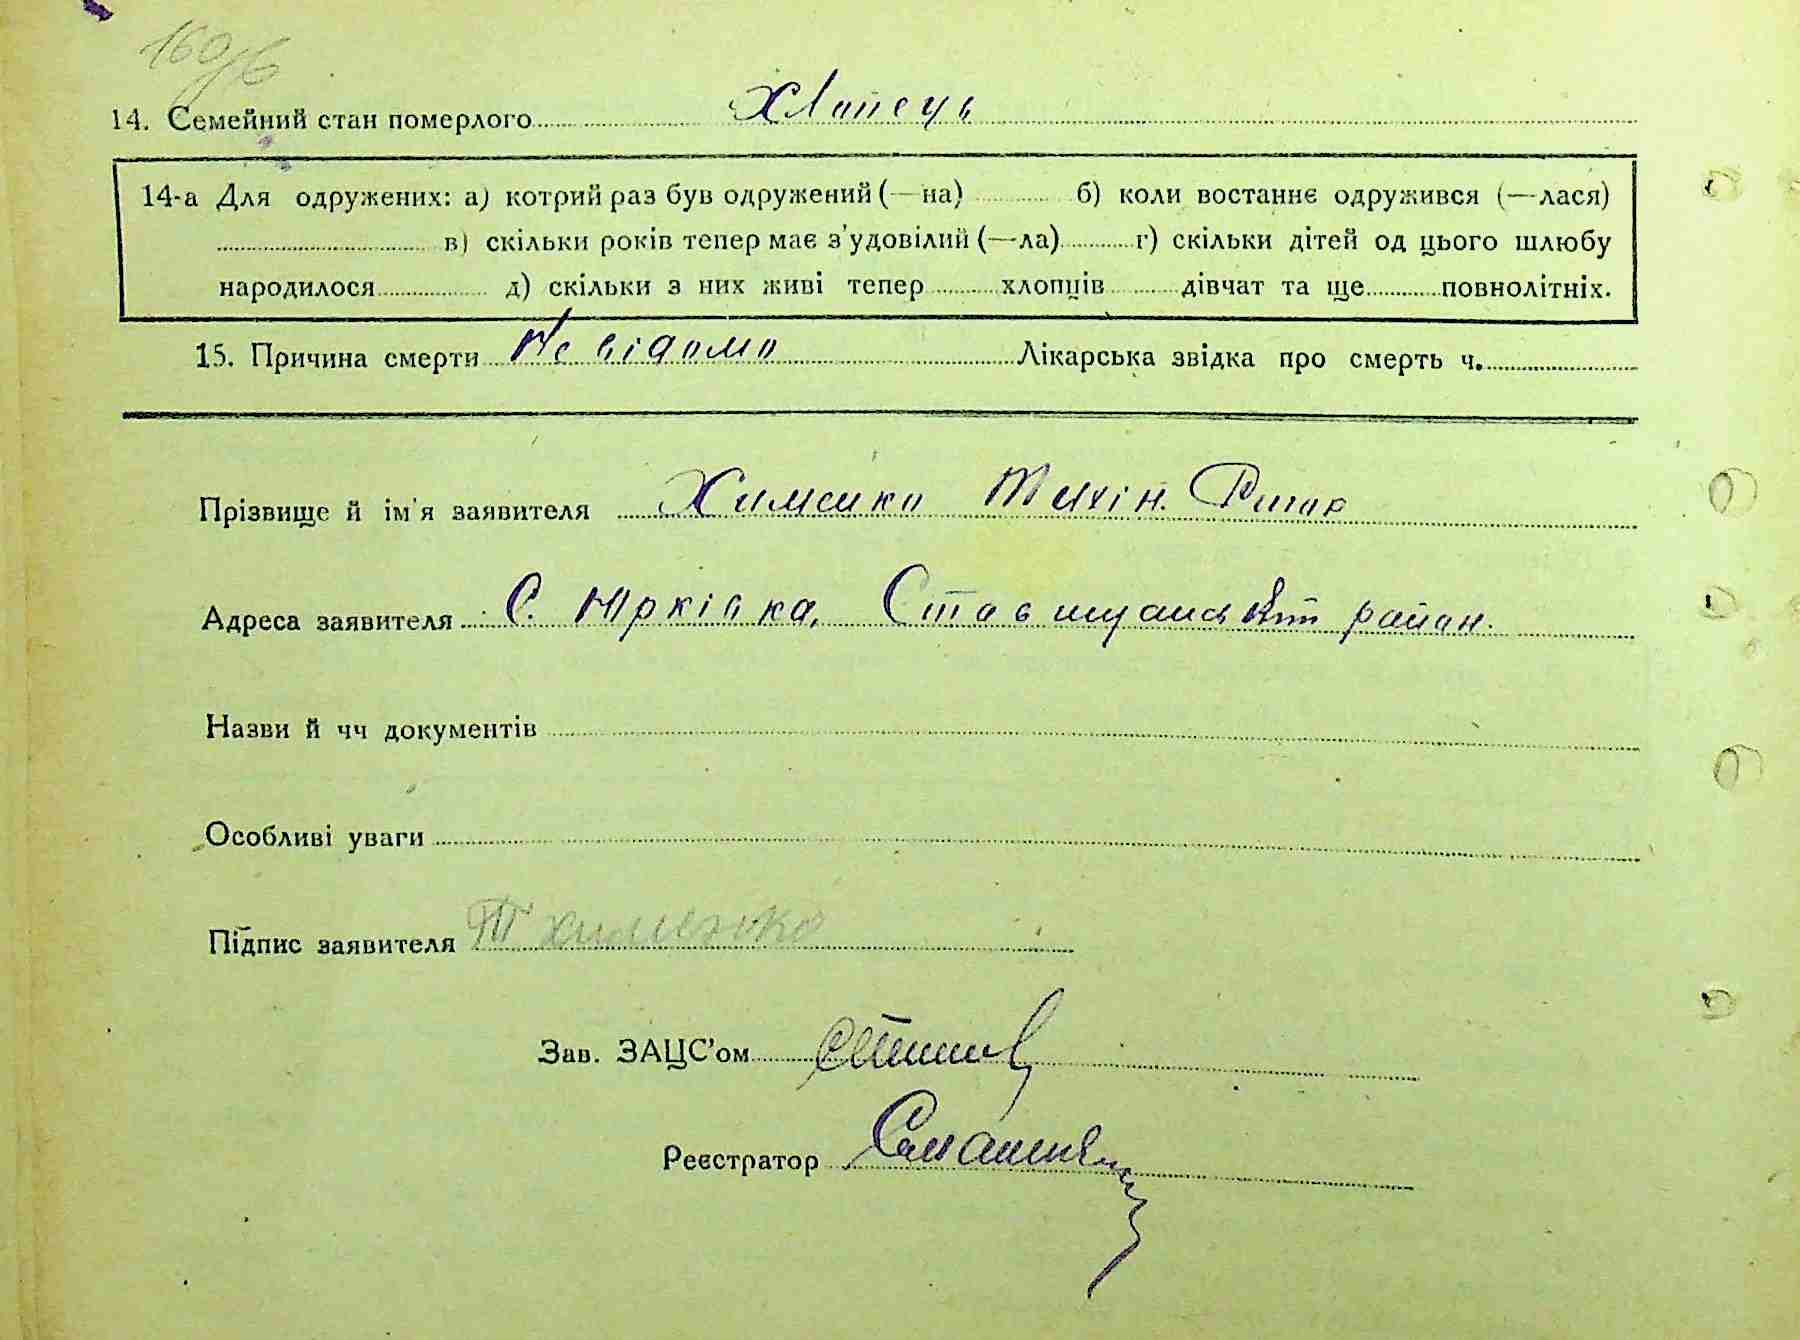 160/б
14. Семейний стан померлого Хлапець
14-а Для одружених: а) котрий раз був одружений (—на) б) коли востаннє одружився (—лася)
в) скільки років тепер має з'удовілий (—ла) г) скільки дітей од цього шлюбу
народилося д) скільки з них живі тепер хлопців дівчат та ще повнолітніх.
15. Причина смерти Не відомо Лікарська звідка про смерть ч.
Прізвище й ім'я заявителя Хименко
Адреса заявителя С. Юрківка, район.
Назви й чч документів
Особливі уваги
Підпис заявителя Т Хименко
Зав. ЗАЦС'ом
Реєстратор